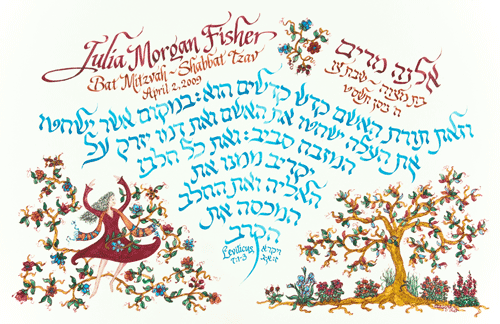 Julia Morgan Fisher
Bat Mitzvah ~ Shabbat Tzav
April 2, 2009
אלנה מרים
בת מצוה ~ שבת צו
ה ניסן תשס״ט
וזאת תורת האשם קדש קדשים הוא: במקום אשר ישחטו
את העלה ישחטו את האשם ואת דמו יזרק על
המזבח סביב: ואת כל חלבו
יקריב ממנו את
האליה ואת החלב
המכסה את
הקרב
Leviticus
7:1-3
ויקרא